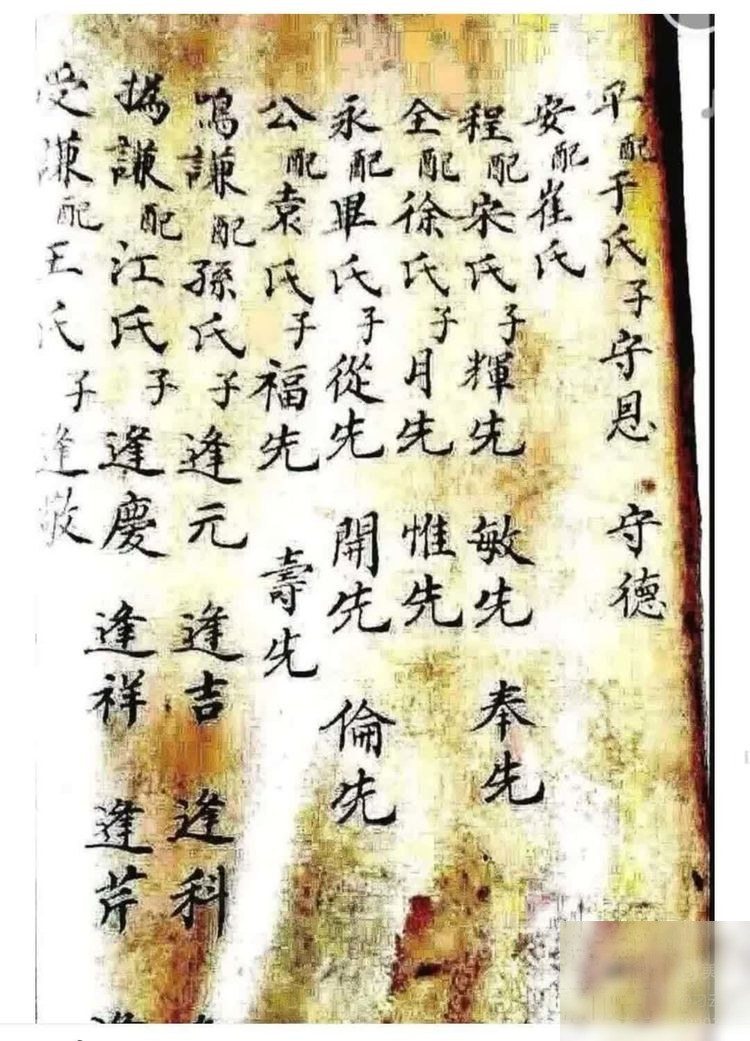 平配于氏子守恩 守德
安配崔氏
程配宋氏子輝先 敏先 奉先
全配徐氏子月先 惟先
永配畢氏子從先 開先 倫先
公配袁氏子福先 壽先
鳴謙配孫氏子逢元 逢吉 逢科
撝謙配江氏子逢慶 逢祥 逢芹 逢
受謙配王氏子逢敬